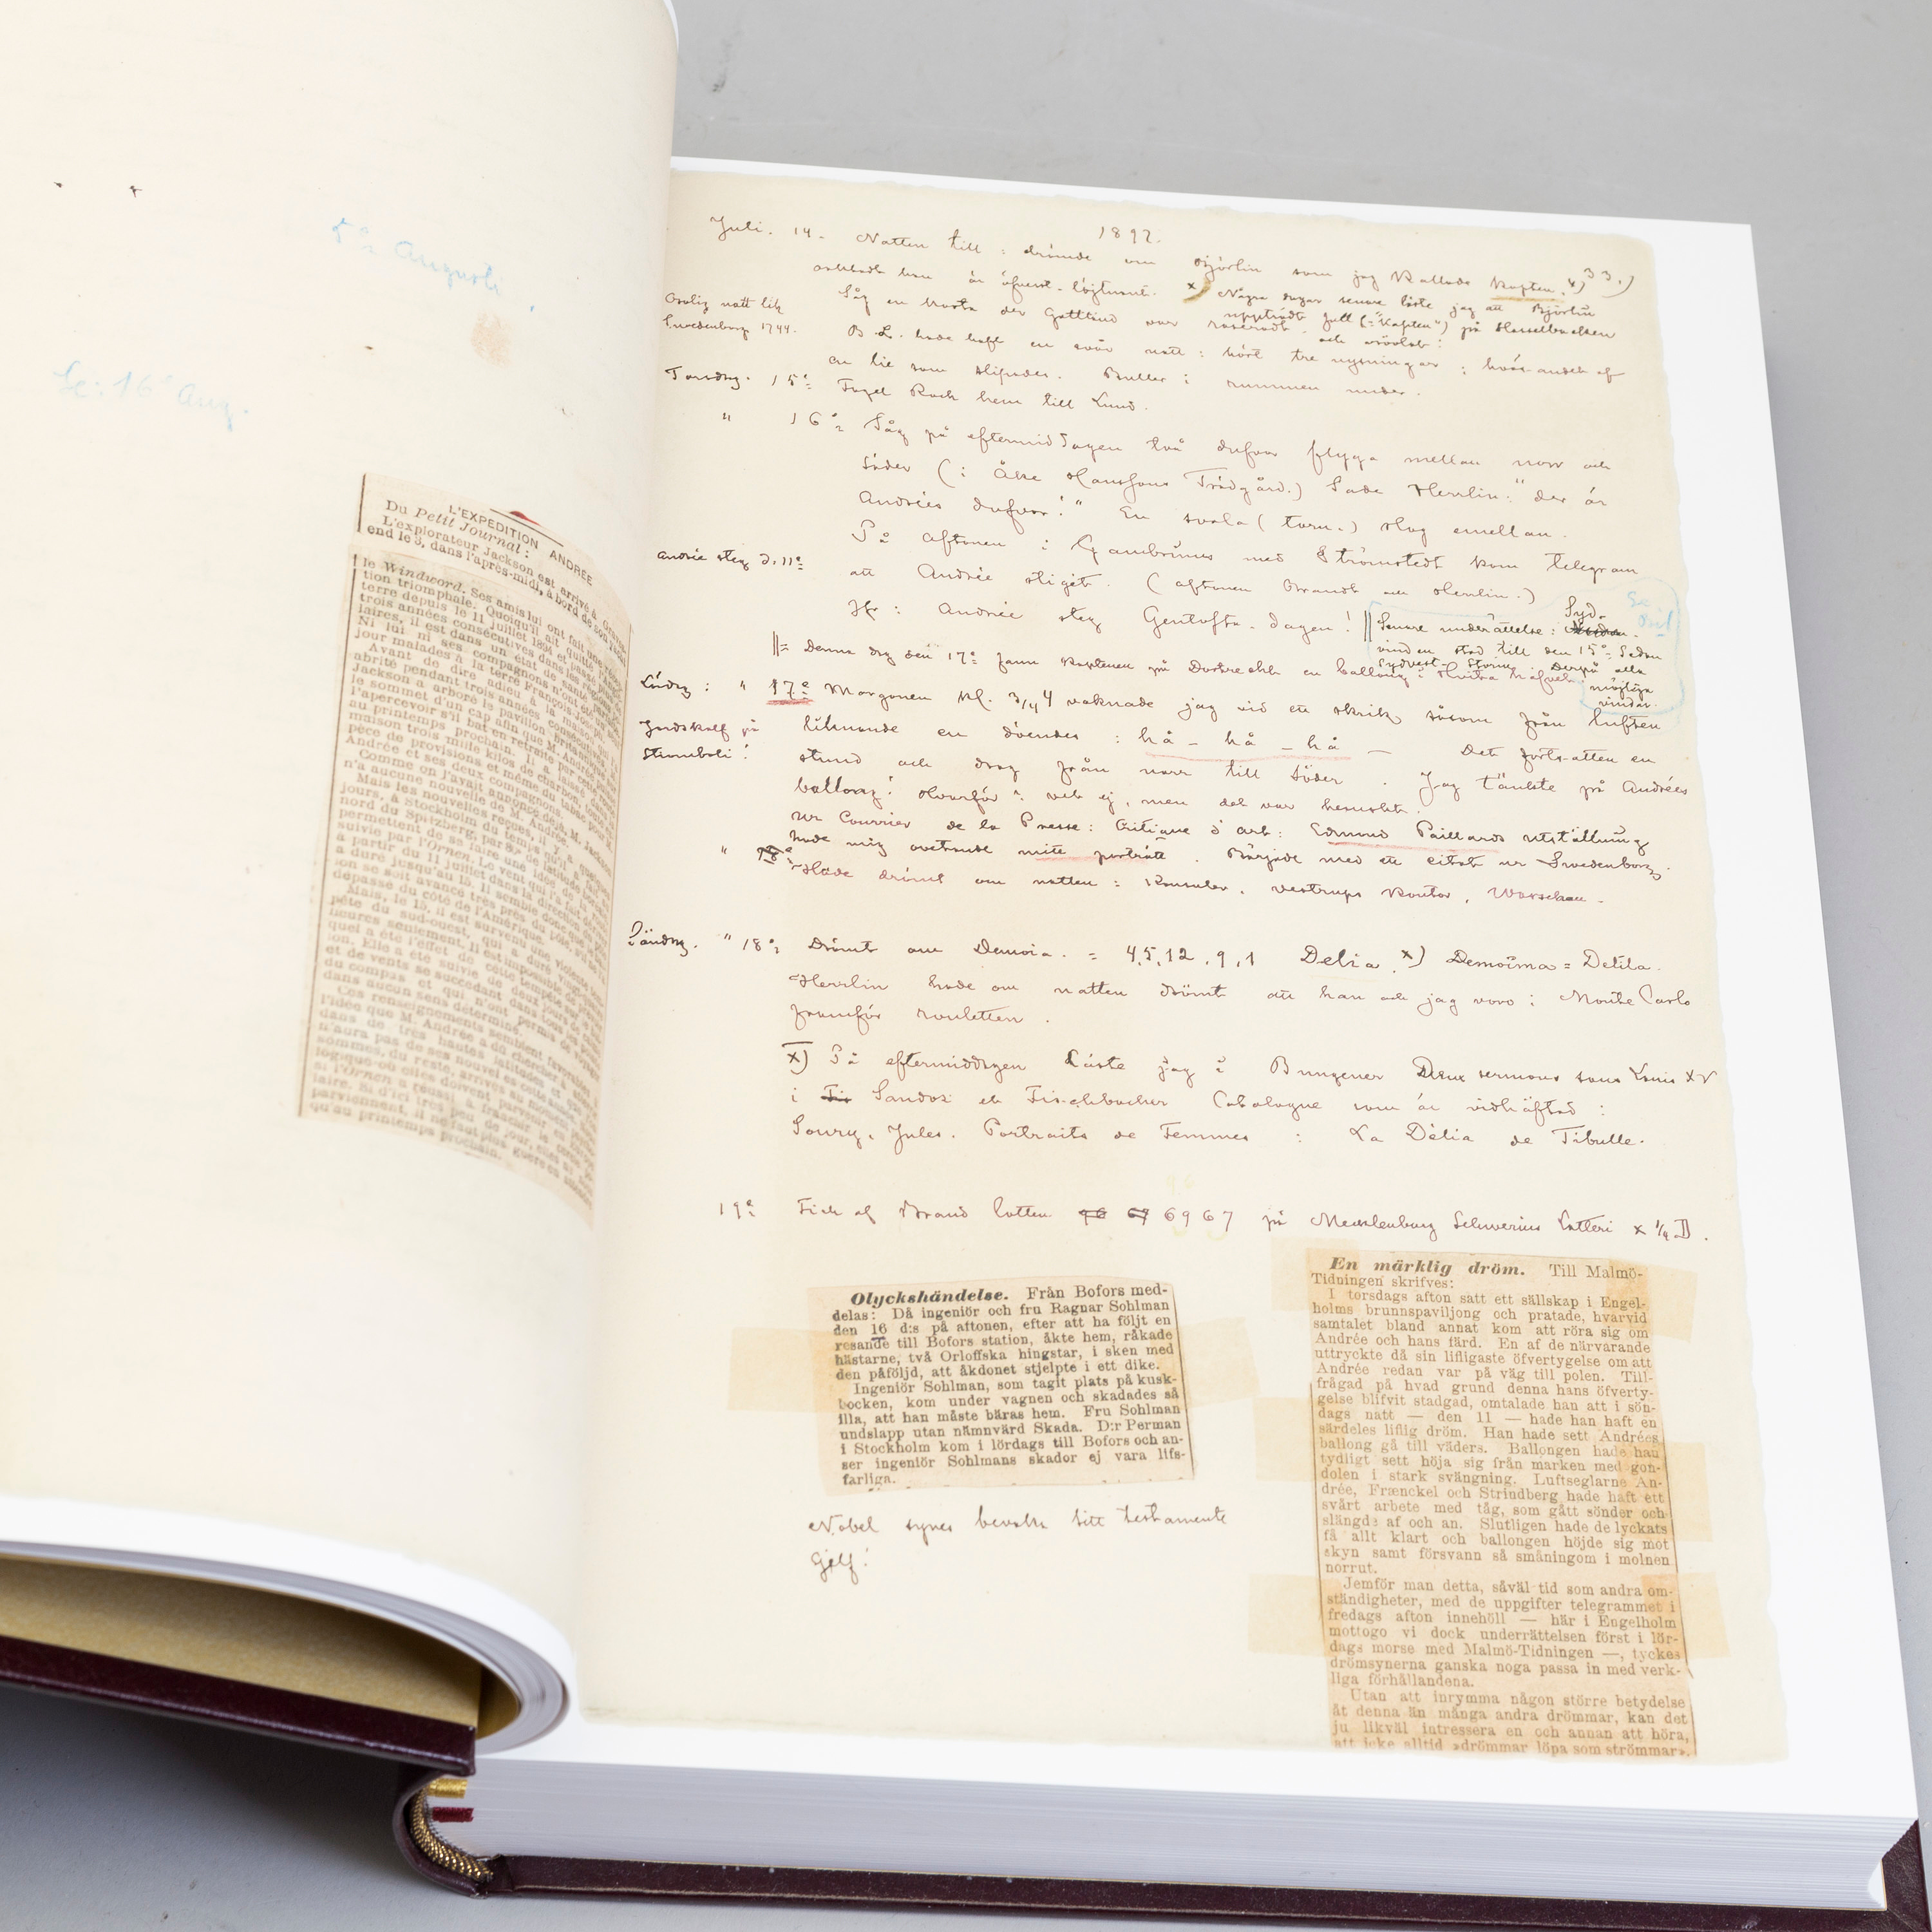 5e Augusti.
Se: 16e Aug.
L'EXPEDITION ANDRÉE
Du Petit Journal:
L'explorateur Jackson est arrivé à
end le 3, dans l'après-midi, à bord de son
le Windword. Ses amis lui ont fait une
tion triomphale. Quoiqu'il ait quitté
terre depuis le 11 juillet 1894 et passé
trois années consécutives dans les
laires, il est dans un état de santé
Ni lui ni ses compagnons n'ont été un
jour malades à la terre François-Joseph.
Avant de dire adieu à la maison qui l'a
abrité pendant trois années consécutives, M.
Jackson a arboré le pavillon britannique
le sommet d'un cap afin que M. Andrée
l'apercevoir s'il bat en retraite par
au printemps prochain. Il a laissé dans
maison trois mille kilos de charbon, toute
pèce de provisions et même du tabac pour M.
Andrée et ses deux compagnons.
Comme on l'avait annoncé déjà, M. Jackson
n'a aucune nouvelle de M. Andrée.
Mais les nouvelles reçues, il y a quelques
jours, à Stockholm du temps qu'il
nord du Spitzberg, par 80 de latitude
permettent de se faire une idée de la
suivie par l'Ornen. Le vent qui l'a
à partir du 11 juillet dans la direction
a duré jusqu'au 15. Il semble donc que
se soit avancé très près du pôle
dépassé du côté de l'Amérique.
Mais, le 15, il est survenu une violente
pête du sud-ouest, qui a duré
heures seulement. Il est impossible de
quel a été l'effet de cette tempête sur
Elle a été suivie de deux jours
et de vents se succédant dans tous les
du compas et qui n'ont permis de
dans aucun sens déterminé.
Ces renseignements semblent favorables
l'idée que M. Andrée a dû chercher à
dans de très hautes latitudes et que
n'aura pas de ses nouvelles cette
sommes, du reste, arrivés au moment
logique où elles doivent parvenir en
si l'Ornen a réussi à franchir le cercle
laire. Si d'ici très peu de jours, elles ne
parviennent, il ne faut plus guère en attendre
qu'au printemps prochain.
1897.
33.)
Juli. 14. Natten till: drömde om Björlin som jag kallade Kapten. x)
är öfverst-löjtnant. x) Några dagar senare läste jag att Björlin
uppträdt full (="Kapten") på Hasselbacken
och
Orolig natt lik
Swedenborg 1744.
Såg en karta der Gottland var raseradt.
B. L. hade haft en svår natt: hört tre nysningar; hväs-andet af
en lie som slipades. Buller i rummen under.
Torsdag. 15e: Fogel Rock hem till Lund.
" 16e: Såg på eftermiddagen två dufvor flyga mellan norr och
Söder (i Åke Hanssons Trädgård.) Sade Herrlin: "der är
Andrées dufvor!" En svala (torn.) slog emellan.
På aftonen i Gambrinus med Strömstedt kom telegram
Andrée steg d. 11e
att Andrée stigit. (aftonen Brandt och Herrlin.)
Andrée steg Gentofta-dagen! || Senare underrättelse: Syd-
vind en stod till den 15e. Sedan
Sydvest-Storm. Derpå alla
möjliga
vindar.
||= Denna dag den 17e fann kaptenen på Dordrecht en ballong i Hvita hafvet.
Lördag: " 17e Morgonen kl. 3/4 4 vaknade jag vid ett skrik såsom från luften
Jordskalf på
Stromboli!
liknande en döendes: hå – hå – hå — Det fortsatten en
stund och drog från norr till söder. Jag tänkte på Andrées
ballong! Hvarför? vet ej, men det var hemskt.
ur Courrier de la Presse: Critique d'art: Edmund Paillards utställning
hade mig ovetande mitt porträtt. Började med ett citat ur Swedenborg.
" 18e: Hade drömt om natten: Konsuler, Vestrups kontor, Warschau.
Söndag. " 18e: Drömt om Demoia. = 4,5,12,9,1 Delia. x) Demoima = Delila.
Herrlin hade om natten drömt att han och jag voro i Monte Carlo
framför rouletten.
x) På eftermiddagen läste jag i Bungener Deux sermons sous Louis XV
i Sandoz et Fischbacher Catalogue som är vidhäftad:
Soury, Jules. Portraits de Femmes: La Délia de Tibulle.
19e: Fick af Brand lotten 6967 på Mecklenburg Schwerins Lotteri x 1/4 D.
Olyckshändelse. Från Bofors med-
delas: Då ingeniör och fru Ragnar Sohlman
den 16 d:s på aftonen, efter att ha följt en
resande till Bofors station, åkte hem, råkade
hästarne, två Orloffska hingstar, i sken med
den påföljd, att åkdonet stjelpte i ett dike.
Ingeniör Sohlman, som tagit plats på kusk-
bocken, kom under vagnen och skadades så
illa, att han måste bäras hem. Fru Sohlman
undslapp utan nämnvärd Skada. D:r Perman
i Stockholm kom i lördags till Bofors och an-
ser ingeniör Sohlmans skador ej vara lifs-
farliga.
Nobel synes bevaka sitt testamente
Sjelf!
En märklig dröm. Till Malmö-
Tidningen skrifves:
I torsdags afton satt ett sällskap i Engel-
holms brunnspaviljong och pratade, hvarvid
samtalet bland annat kom att röra sig om
Andrée och hans färd. En af de närvarande
uttryckte då sin lifligaste öfvertygelse om att
Andrée redan var på väg till polen. Till-
frågad på hvad grund denna hans öfverty-
gelse blifvit stadgad, omtalade han att i sön-
dags natt — den 11 — hade han haft en
särdeles liflig dröm. Han hade sett Andrées
ballong gå till väders. Ballongen hade han
tydligt sett höja sig från marken med gon-
dolen i stark svängning. Luftseglarne An-
drée, Frænckel och Strindberg hade haft ett
svårt arbete med tåg, som gått sönder och
slängde af och an. Slutligen hade de lyckats
få allt klart och ballongen höjde sig mot
skyn samt försvann så småningom i molnen
norrut.
Jemför man detta, såväl tid som andra om-
ständigheter, med de uppgifter telegrammet i
fredags afton innehöll — här i Engelholm
mottogo vi dock underrättelsen först i lör-
dags morse med Malmö-Tidningen —, tyckes
drömsynerna ganska noga passa in med verk-
liga förhållandena.
Utan att inrymma någon större betydelse
åt denna än många andra drömmar, kan det
ju likväl intressera en och annan att höra,
att icke alltid »drömmar löpa som strömmar».